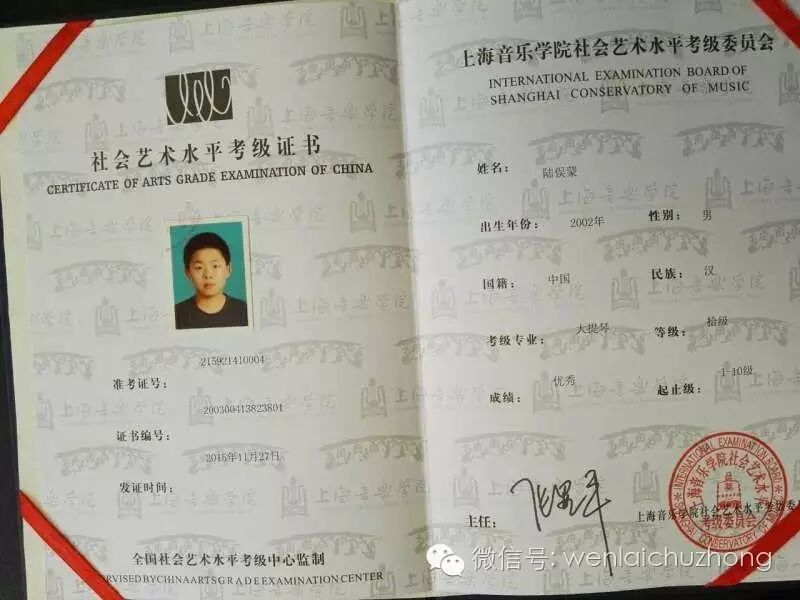 社会艺术水平考级证书
CERTIFICATE OF ARTS GRADE EXAMINATION OF CHINA
215921410004
准考证号：
200300413823801
证书编号：
2015年11月27日
发证时间：
全国社会艺术水平考级中心监制
RVISED BY CHINA ARTS GRADE EXAMINATION CENTER
上海音乐学院社会艺术水平考级委员会
INTERNATIONAL EXAMINATION BOARD OF
SHANGHAI CONSERVATORY OF MUSIC
姓名： 陆俣蒙
出生年份： 2002年 性别： 男
国籍： 中国 民族： 汉
考级专业： 大提琴 等级： 拾级
成绩： 优秀 起止级： 1-10级
主任：
上海音乐学院社会艺术水平考级委
INTERNATIONAL EXAMINATION BOARD
SHANGHAI CONSERVATORY OF MUSIC
考级委员会
微信号: wenlaichuzhong
上海音乐学院